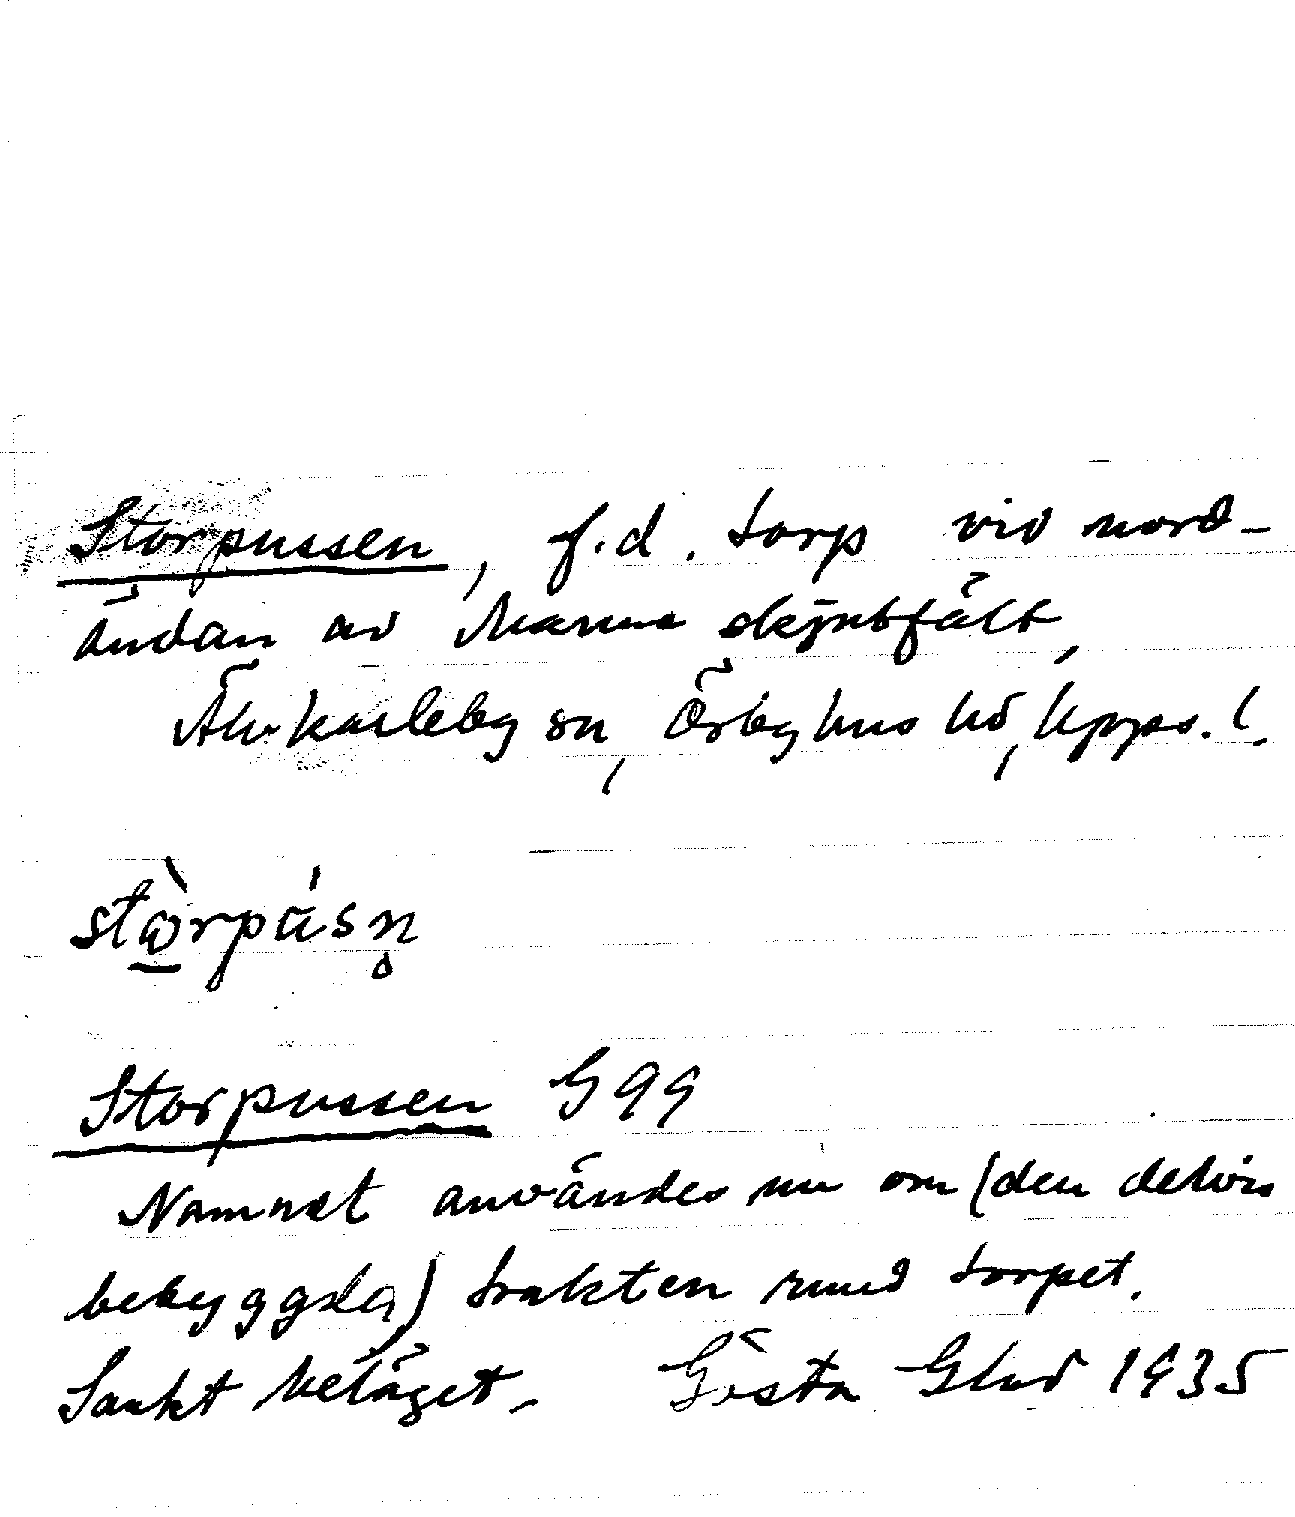 Storpussen, f.d. torp vid nord-
ändan av Marma skjutfält,
Älvkarleby sn, Örbyhus hd, Upps. l.
Storpussen G 99
Namnet användes nu om (den delvis
bebyggda) trakten runt torpet.
Sankt beläget. Gösta 1935